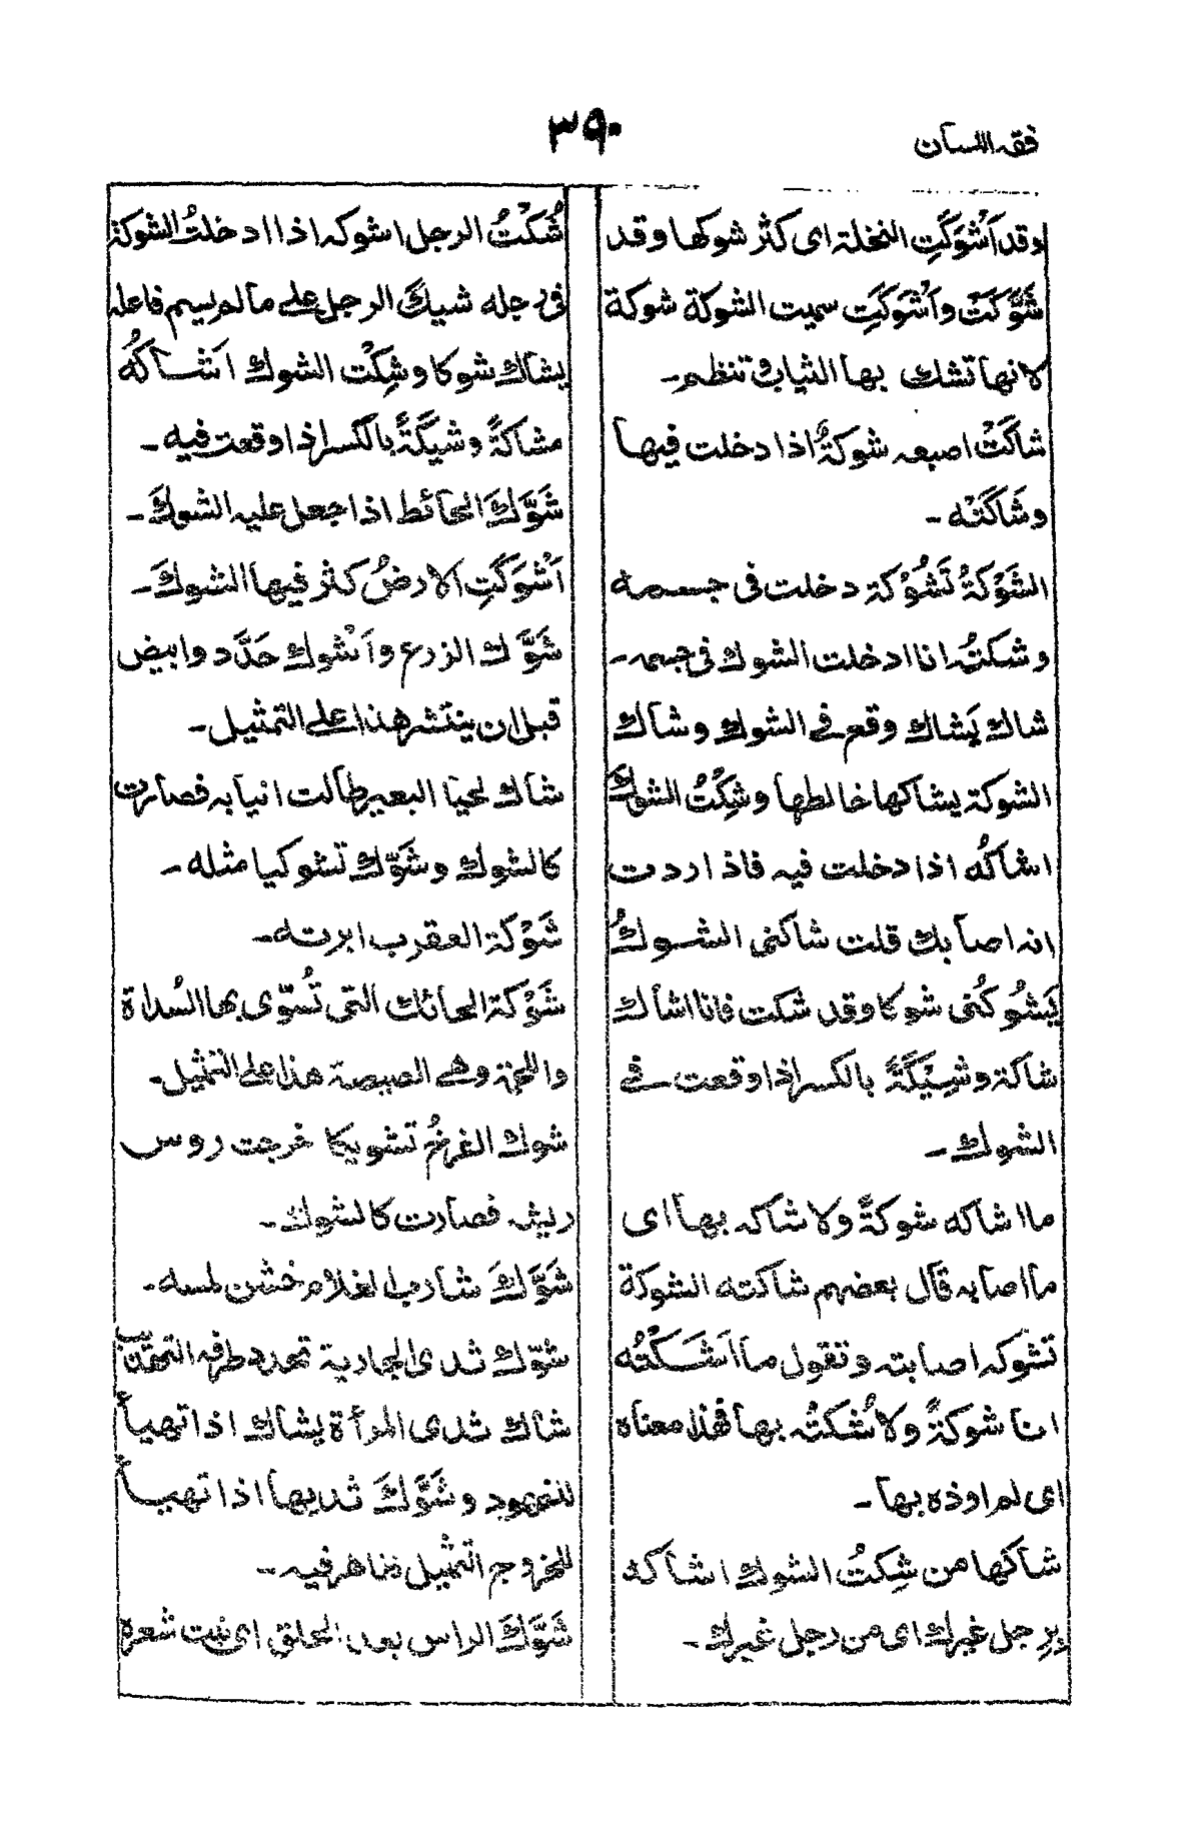 فقہ اللسان
۳۹۰
وقد اَشْوَكَتِ النخلة اى كثر شوكها وقد
شَوَّكَتْ واَشْوَكَتِ سميت الشوكة شوكة
لانها تشك بها الثياب وتنظم ـ
شاكَتْ اصبعه شوكةٌ اذا دخلت فيها
وشَاكَتْه ـ
الشَوْكَةُ تَشُوْكة دخلت فى جسمه
وشكتُه انا ادخلت الشوك فى جسمه ـ
شاك يَشاك وقع فى الشوك وشاك
الشوكة يشاكها خالطها وشِكْتُ الشوك
اشاكُه اذا دخلت فيه فاذا اردت
انه اصابك قلت شاكنى الشوكُ
يَشُوكُنى شوكا وقد شكت فانا اشاك
شاكة وشِيْكَةً بالكسر اذا وقعت فى
الشوك ـ
ما اشاكه شوكةً ولا شاكه بها اى
ما اصابه قال بعضهم شاكته الشوكة
تشوكه اصابته وتقول ما اَشَكْتُه
انا شوكةً ولا شُكتُه بها فهذا معناه
اى لم اوذه بها ـ
شاكها من شِكتُ الشوك اشاكه
بِرِجل غيرك اى من رجل غيرك ـ
شُكْتُ الرجل اشوكه اذا ادخلتُ الشوكة
فى رجله شيكَ الرجل على ما لم يسم فاعله
يشاك شوكا وشِكْت الشوك اَشاكُه
مشاكةً وشيكَةً بالكسر اذا وقعت فيه ـ
شَوَّكَ الحائط اذا جعل عليه الشوكَ ـ
اَشْوَكَتِ الارضُ كثر فيها الشوكَ ـ
شَوَّك الزرع واَشْوك حَدَّد وابيض
قبل ان ينتشر هذا على التمثيل ـ
شاك لحيا البعير طالت انيابه فصارت
كالشوك وشَوَّك تشوكيا مثله ـ
شَوْكة العقرب ابرته ـ
شَوْكة الحائك التى تُسوّى بها السُداة
واللحمة وهى الصيصة هذا على التمثيل ـ
شوك الفرخُ تشويكا خرجت روس
ريشه فصارت كالشوك ـ
شَوَّكَ شارب الغلام خشن لمسه ـ
شوّك ثدى الجارية تحدد طرفه
شاك ثدى المرأة يشاك اذا تهيأ
للنهود وشَوَّكَ ثديها اذا تهيأ
للخروج التمثيل ظاهر فيه ـ
شَوَّكَ الراس بعد الحلق اى نبت شعرة